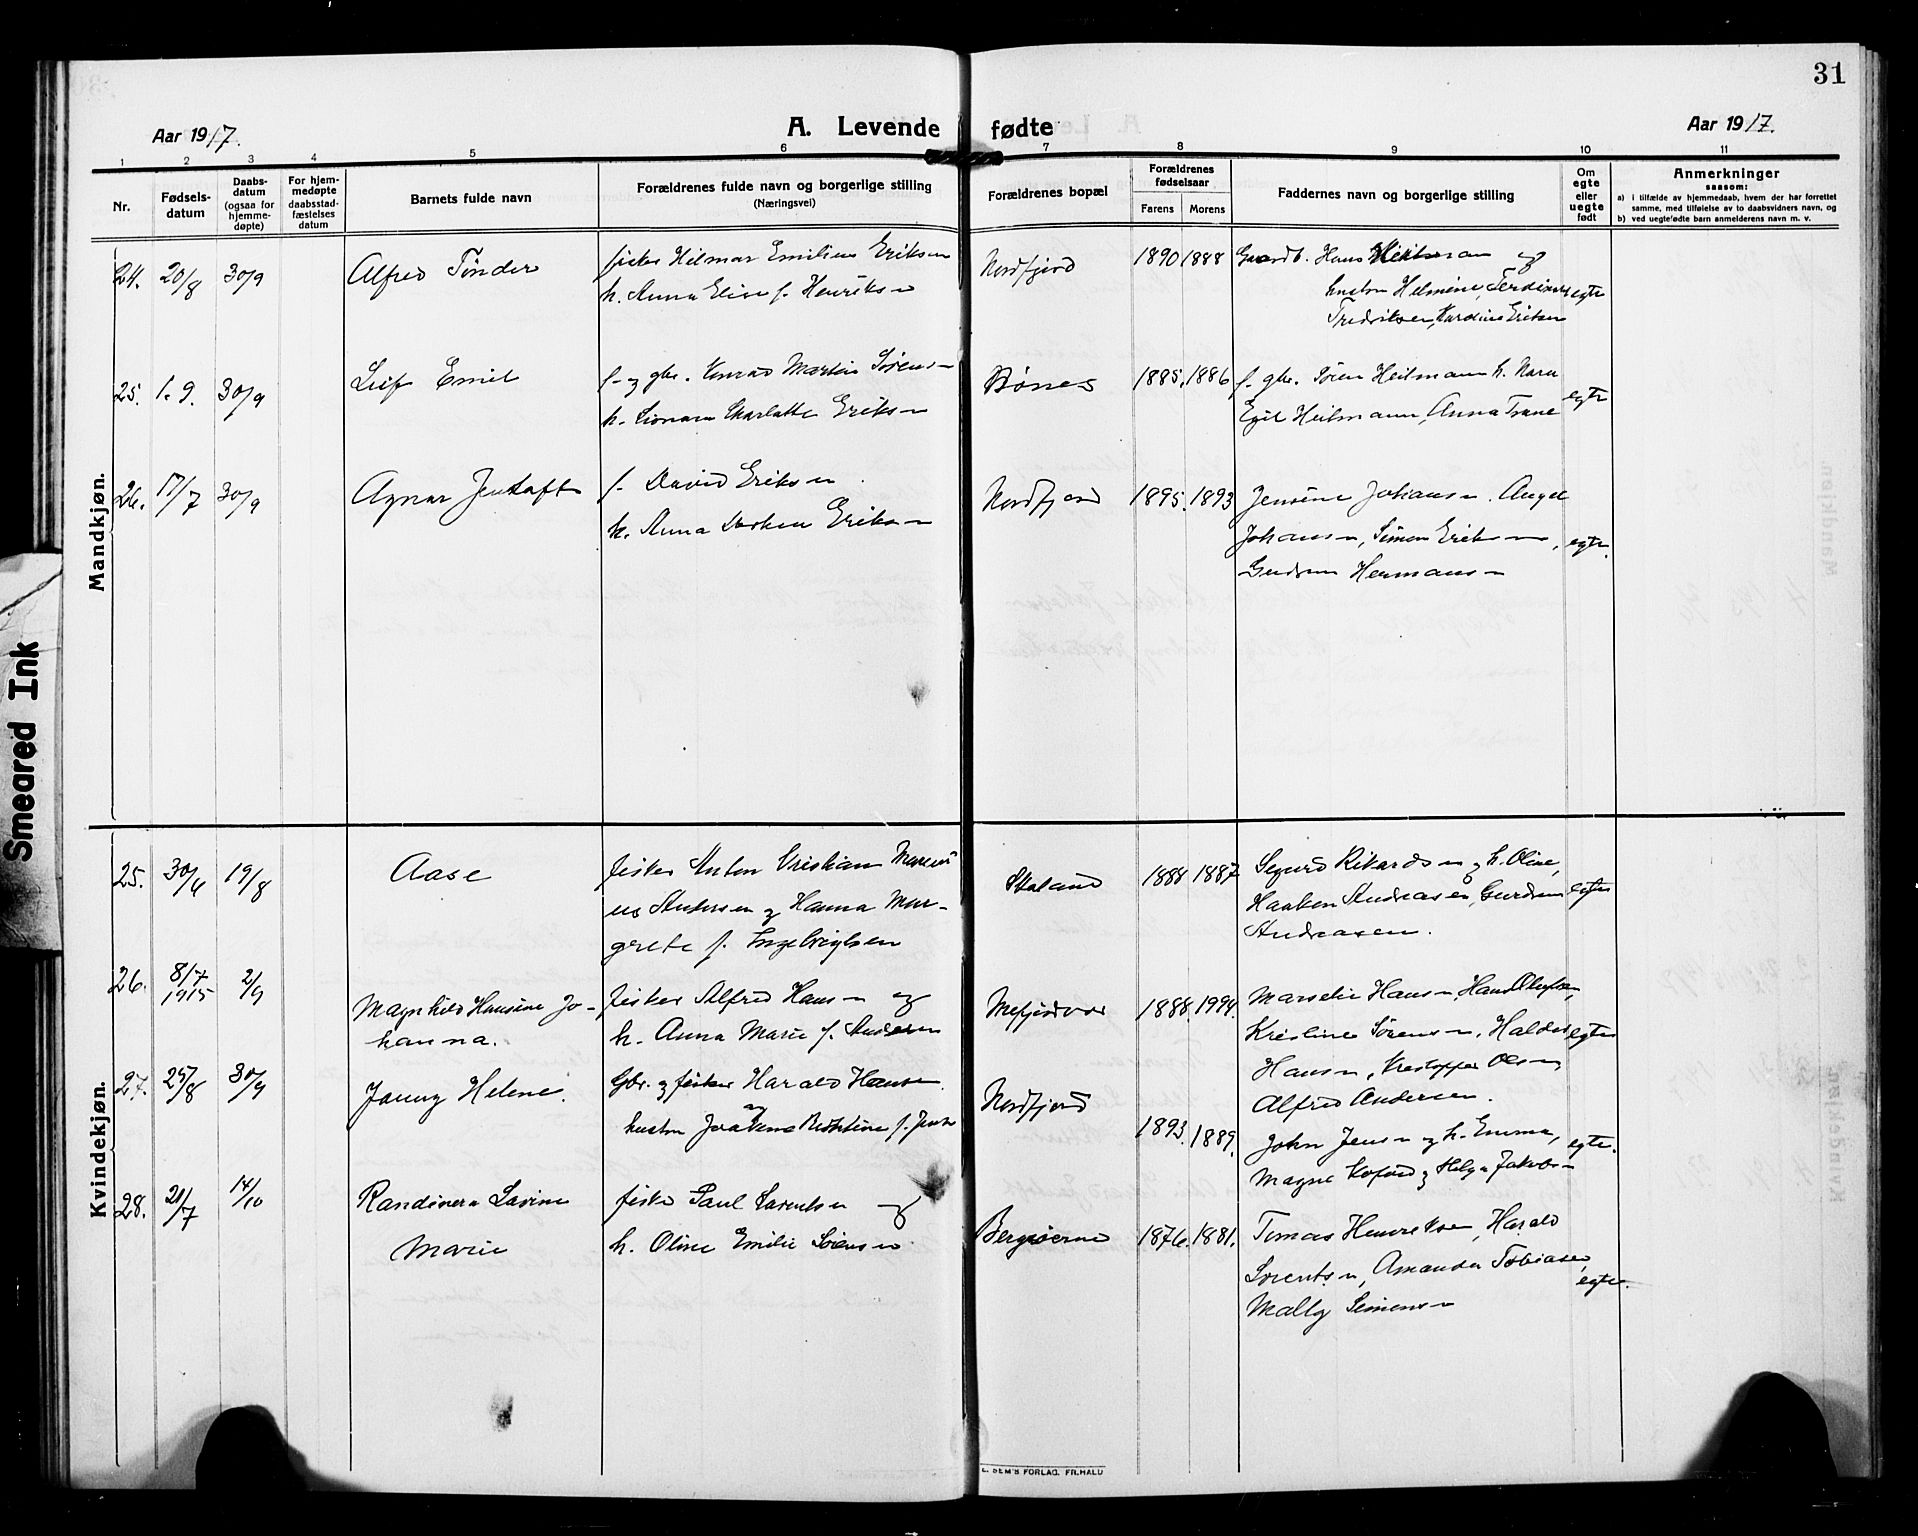 31
Aar 1917.
A. Levende fødte
Aar 1917.
1 2 3 4 5 6 7 8 9 10 11
Nr.
Fødsels-
datum
Daabs-
datum
(ogsaa for
hjemme-
døpte)
For hjem-
medøpte
daabsstad-
fæstelses
datum
Barnets fulde navn
Forældrenes fulde navn og borgerlige stilling
(Næringsvei)
Forældrenes bopæl
Forældrenes
fødselsaar
Farens Morens
Faddernes navn og borgerlige stilling
Om
egte
eller
uegte
født
Anmerkninger
saasom:
a) i tilfælde av hjemmedaab, hvem der har forrettet
samme, med tilføielse av to daabsvidners navn, og
b) ved uegtefødte barn anmelderens navn m. v.
Mandkjøn.
24. 20/8 30/9 Alfred Tönder
fisker Hilmar Emilius Eriksen
h. Anna Elise f. Henriksen
Nordfjord 1890 1888
Gaardb. Hans Heitman og
hustru Helmine, Ferdinand
Fredriksen, Kardine Eriksen
egte
25. 1.9. 30/9 Leif Emil
f. og gbr. Konrad Martin Sørens-
h. Charlotte Eriksen
Bönes 1885. 1886
f. gbr. Sören Heitmann h. Nara
Egil Heitmann, Anna Trane
egte
26. 17/7 30/9 Agnar Jentoft
f. David Eriksen.
h. Anna Eriksen
Nordfjord 1895. 1893
Jensine Johansen. Angel
Johansen, Simon Eriksen,
Gudrun Hermansen
egte.
Kvindekjøn.
25. 30/4 19/8 Aase
fisker Anton Kristian
Andersen og Hanna Mar-
grete f. Ingebrigtsen
Skaland 1888 1887
Sigurd Rikardsen og h. Oline,
Haakon Andreasen, Gudrun
Andreasen.
egte
26. 8/7 1915 2/9
Magnhild Hansine Jo-
hanna.
fisker Alfred Hansen og
h. Anna Marie f. Andersen
Mefjordvær 1888. 1994.
Marselie Hansen, Hans Olufsen,
Kristine Sørensen, Haldis
Hansen, Kristoffer Olsen
Alfred Andersen.
egte
27. 25/8 30/9 Jenny Helene.
Gbr. og fisker Harald Hansen
hustru f. Jens
Nordfjord 1893. 1889.
John Jensen og h. Emma,
Magne Kofoed og Helga Jakobs-
egte.
28. 21/7 14/10
Randivera Lavine
Marie
fisker Paul Lorentsen og
h. Oline Emilie Sörensen
Bergsøerne 1876. 1881.
Tomas Henriksen, Harald
Lorentsen, Amanda Tobiasen,
Mally Simensen
egte.
Smeared Ink
E. SEM'S FORLAG. FR.HALD